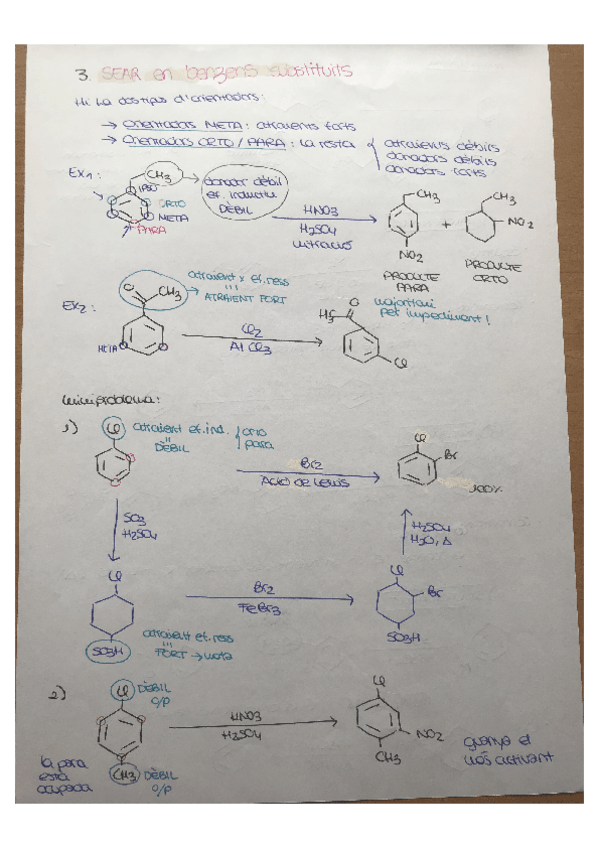 3. SEAR en benzens substituïts
Hi ha dos tipus d'orientadors:
→ Orientadors META: atraients forts
→ Orientadors ORTO / PARA: la resta
atraients dèbils
donadors dèbils
donadors forts
Ex1:
CH3
IPSO
ORTO
META
PARA
donador dèbil
ef. inductiu
DÈBIL
HNO3
H2SO4
nitració
CH3
NO2
PRODUCTE
PARA
+
CH3
NO2
PRODUCTE
ORTO
Ex2:
O
CH3
META
atraient x ef. ress
ATRAIENT FORT
Cl2
AlCl3
O
H3C
Cl
majoritari
pel impediment!
miniproblema:
1)
Cl
atraient ef. ind.
DÈBIL
orto
para
Br2
Àcid de Lewis
Cl
Br
100%
SO3
H2SO4
H2SO4
H2O, Δ
Cl
SO3H
atraient ef. ress
FORT → meta
Br2
FeBr3
Cl
Br
SO3H
2)
Cl
DÈBIL
o/p
CH3
DÈBIL
o/p
la para
està
ocupada
HNO3
H2SO4
Cl
NO2
CH3
guanya el
més activant